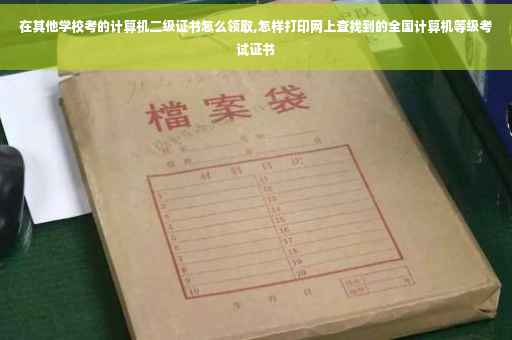 在其他学校考的计算机二级证书怎么领取,怎样打印网上查找到的全国计算机等级考
试证书
檔案袋
材料目次
1 11
2 12
3 13
4 14
5 15
6 16
7 17
8 18
9 19
10 20
年 月 日